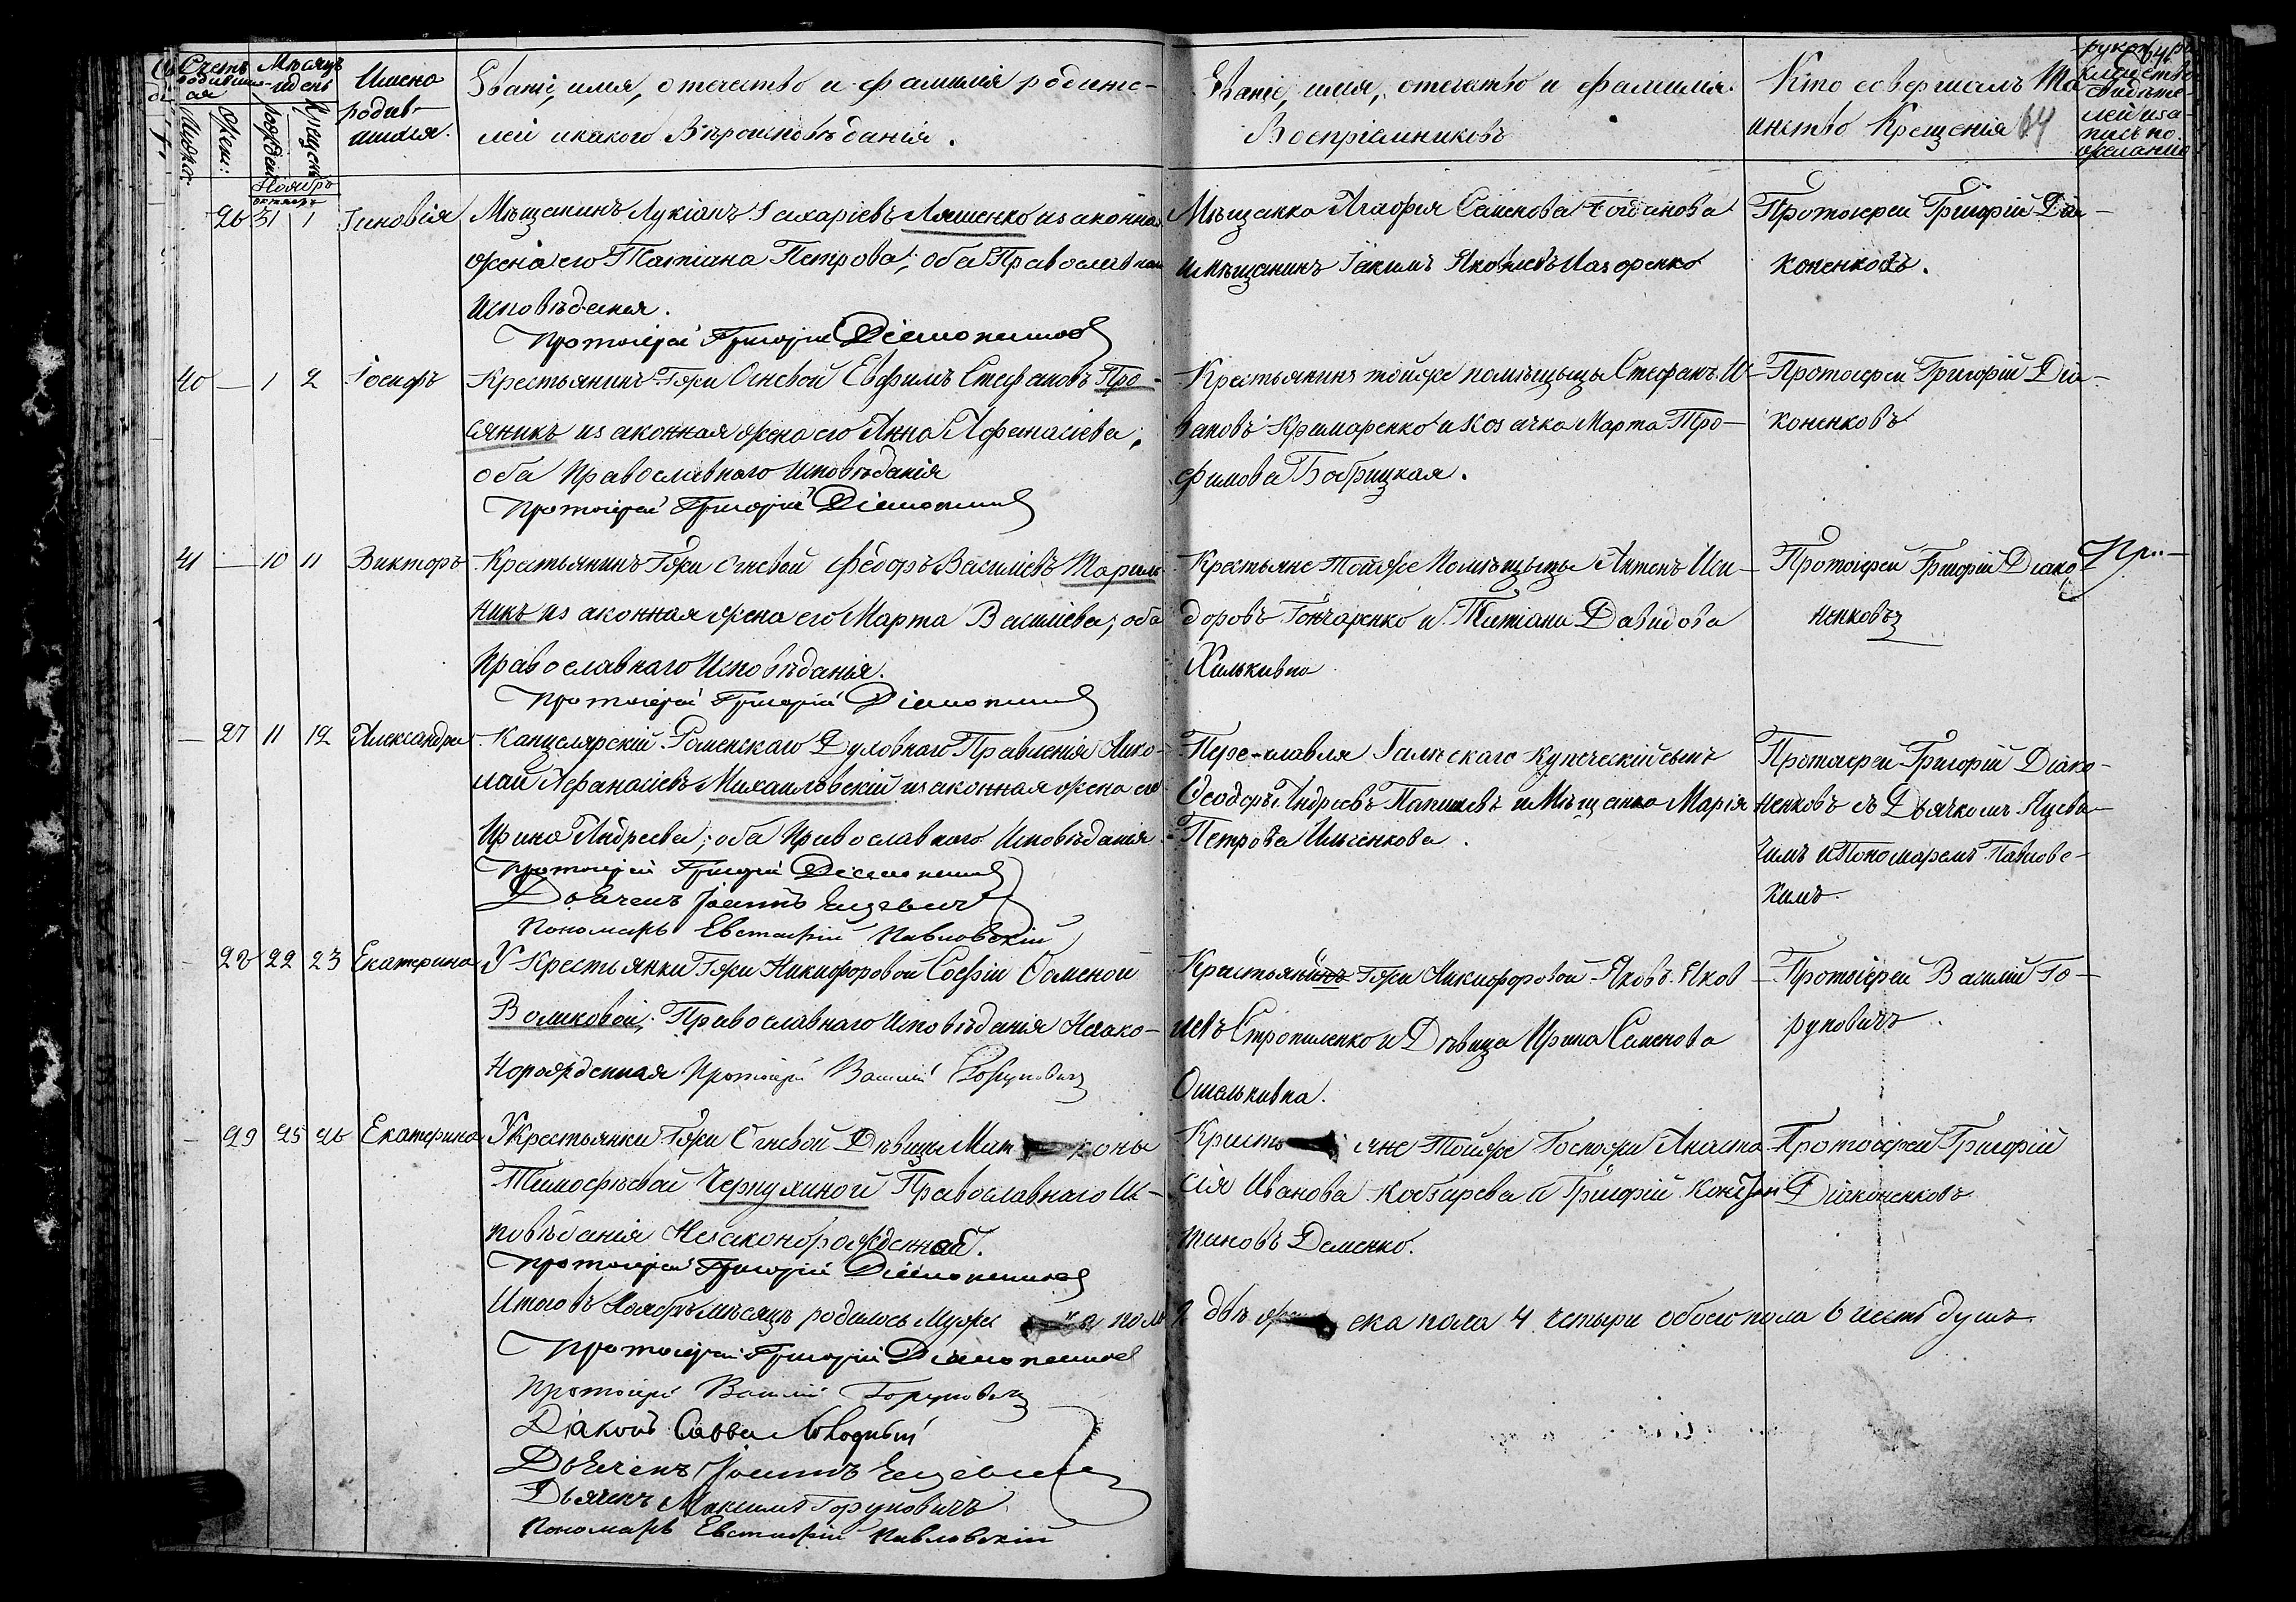 Счетъ родившихся
Мѣсяцъ и день
Имена родившихся.
Званіе, имя, отечество и фамилія родите-
лей и какого Вѣроисповѣданія.
Званіе, имя, отечество и фамилія
Воспріемниковъ
Кто совершалъ Та-
инство Крещенія 64
свидѣте-
лей
Ноябрь
26 31 1 Зиновія Мѣщанинъ Лукіанъ Захаріевъ Ляшенко и законная
жена его Татіана Петрова; оба Православнаго
Исповѣданія.
Протоіерей Григорій Діаконенковъ
Мѣщанка Агафія Семенова
и мѣщанинъ Іакимъ Яковлевъ Назоренко
Протоіерей Григорій Діа-
коненковъ.
40 — 1 2 Іосифъ Крестьянинъ Г-жи Огневой Евфимъ Стефановъ Про-
сяникъ и законная жена его Анна Афанасіева;
оба Православнаго Исповѣданія
Протоіерей Григорій Діаконенковъ
Крестьянинъ тойже помѣщицы Стефанъ И-
вановъ Крамаренко и козачка Марта Тро-
фимова Бобрицкая.
Протоіерей Григорій Діа-
коненковъ
41 — 10 11 Викторъ Крестьянинъ Г-жи Огневой Ѳедоръ Василіевъ
никъ и законная жена его Марта Василіева; оба
Православнаго Исповѣданія.
Протоіерей Григорій Діаконенковъ
Крестьяне Тойже Помѣщицы Антонъ Иси-
доровъ Гончаренко и Татіана Давидова
Хилькивна
Протоіерей Григорій Діако
ненковъ
— 27 11 12 Александра Канцелярскій Роменскаго Духовнаго Правленія Нико-
лай Афанасіевъ Михаиловскій и законная жена его
Ирина Андреева; оба Православнаго Исповѣданія
Протоіерей Григорій Діаконенковъ
Дьячекъ Іоаннъ Яцевичъ
Пономарь Евстафій Павловскій
Переславля Залѣскаго купеческій сынъ
Ѳеодоръ Андреевъ и Мѣщанка Марія
Петрова Ильченкова.
Протоіерей Григорій Діако-
ненковъ съ Дьячкомъ Яцеви-
чемъ и Пономаремъ Павловс-
кимъ.
28 22 23 Екатерина У Крестьянки Г-жи Никифоровой Софіи
Воликовой; Православнаго Исповѣданія Незако-
норожденная Протоіерей Василій Горуновичъ
Крестьянинъ Г-жи Никифоровой Яковъ Яков-
левъ Стропиленко и Дѣвица Ирина Семенова
Омелькивна.
Протоіерей Василій Го-
руновичъ.
— 29 25 26 Екатерина У Крестьянки Г-жи Огневой Дѣвицы Мат роны
Тимофѣевой Черпухиной Православнаго И-
повѣданія Незаконорожденная.
Протоіерей Григорій Діаконенковъ
Кресть яне Тойже Госпожи Анаста-
сія Иванова Кобзарева и Григорій Констан-
тиновъ Деменко.
Протоіерей Григорій
Діаконенковъ
Итого въ Ноябрѣ мѣсяцѣ родилось Мужс ка пола 2 двѣ женс ска пола 4 четыри обоего пола 6 шесть душъ.
Протоіерей Григорій Діаконенковъ
Протоіерей Василій Горуновичъ
Діаконъ Савва
Дьячекъ Іоаннъ Яцевичъ
Дьячекъ Максимъ Горуновичъ
Пономарь Евстафій Павловскій